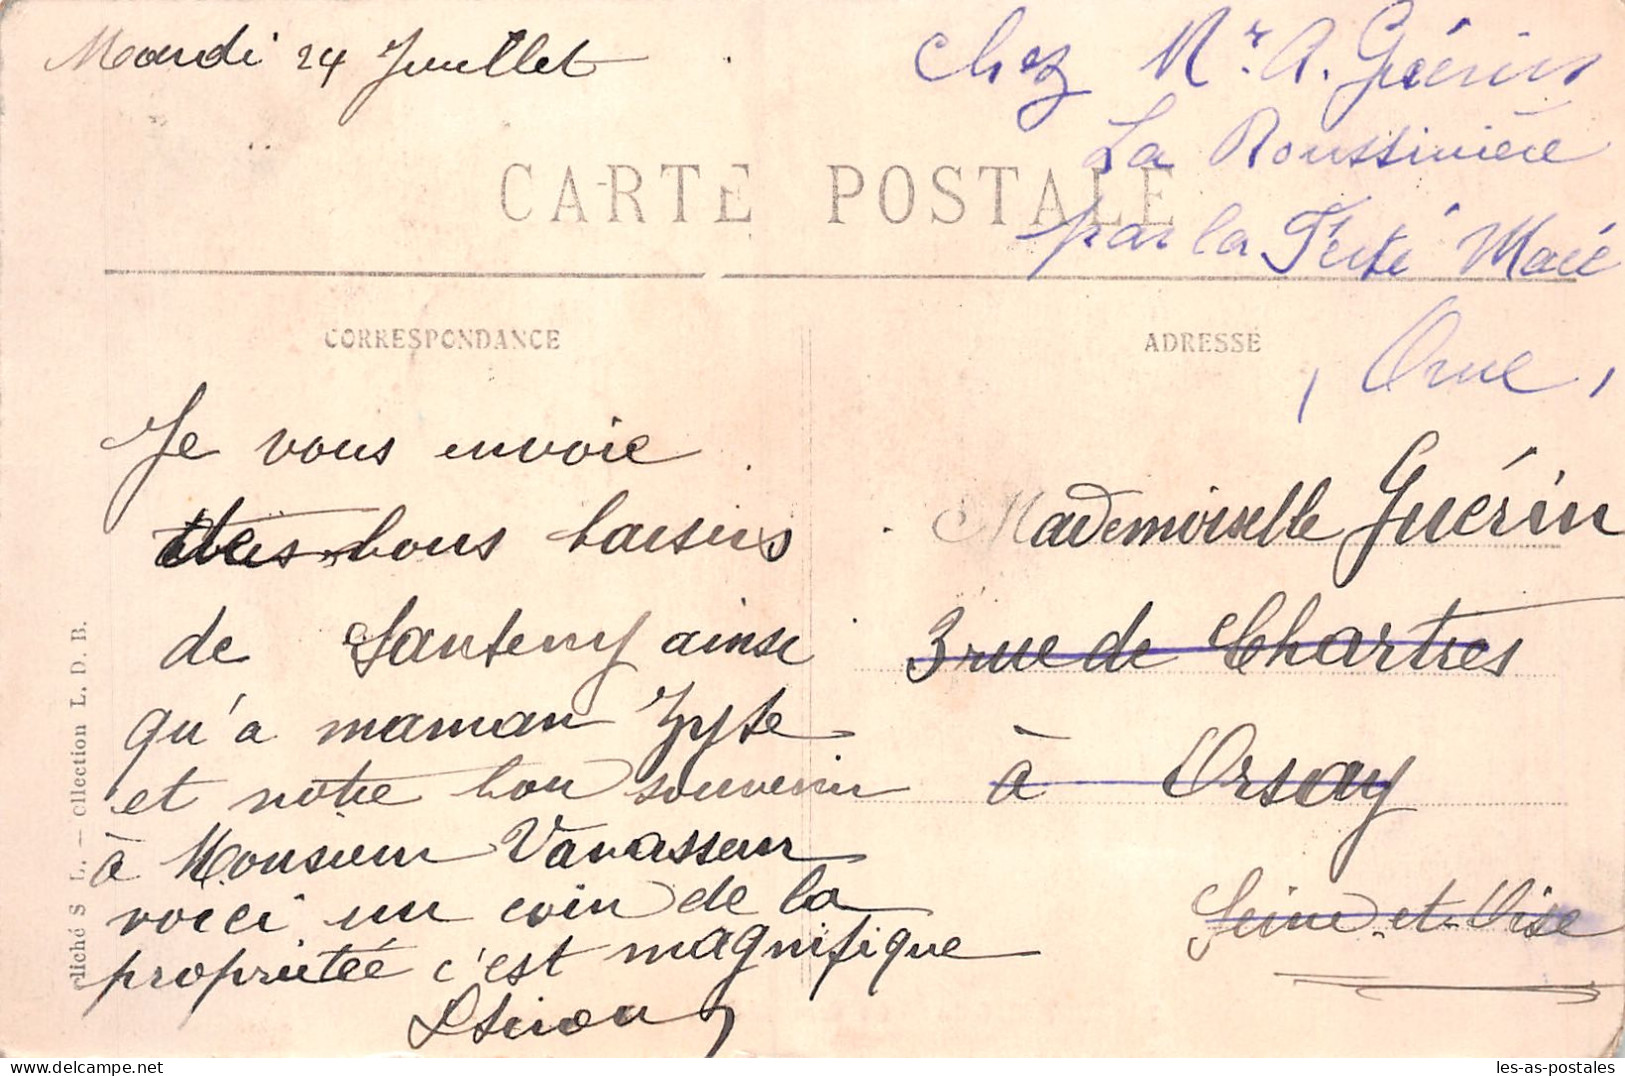 Mardi 24 Juillet
chez Mr. A. Guérin
La Roussinière
par la Ferté Macé
, Orne,
CARTE POSTALE
CORRESPONDANCE
ADRESSE
Je vous envoie
bons baisers
de Santeny ainsi
qu'a maman Zyte
et notre bon souvenir
à Monsieur Vavasseur
voici un coin de la
propriétée c'est magnifique
Mademoiselle Guérin
3 rue de Chartres
à Orsay
Seine-et-Oise
cliché S L. — cllection L. D. B.
les-as-postales